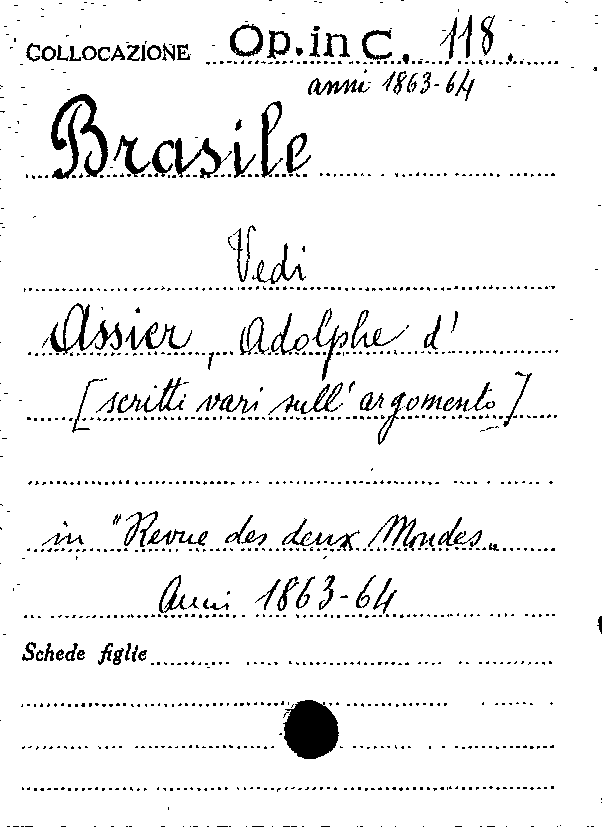 COLLOCAZIONE Op. in C. 118.
anni 1863-64
Brasile
Vedi
Assier, Adolphe d'
[scritti vari sull'argomento]
in "Revue des deux Mondes„
Anni 1863-64
Schede figlie